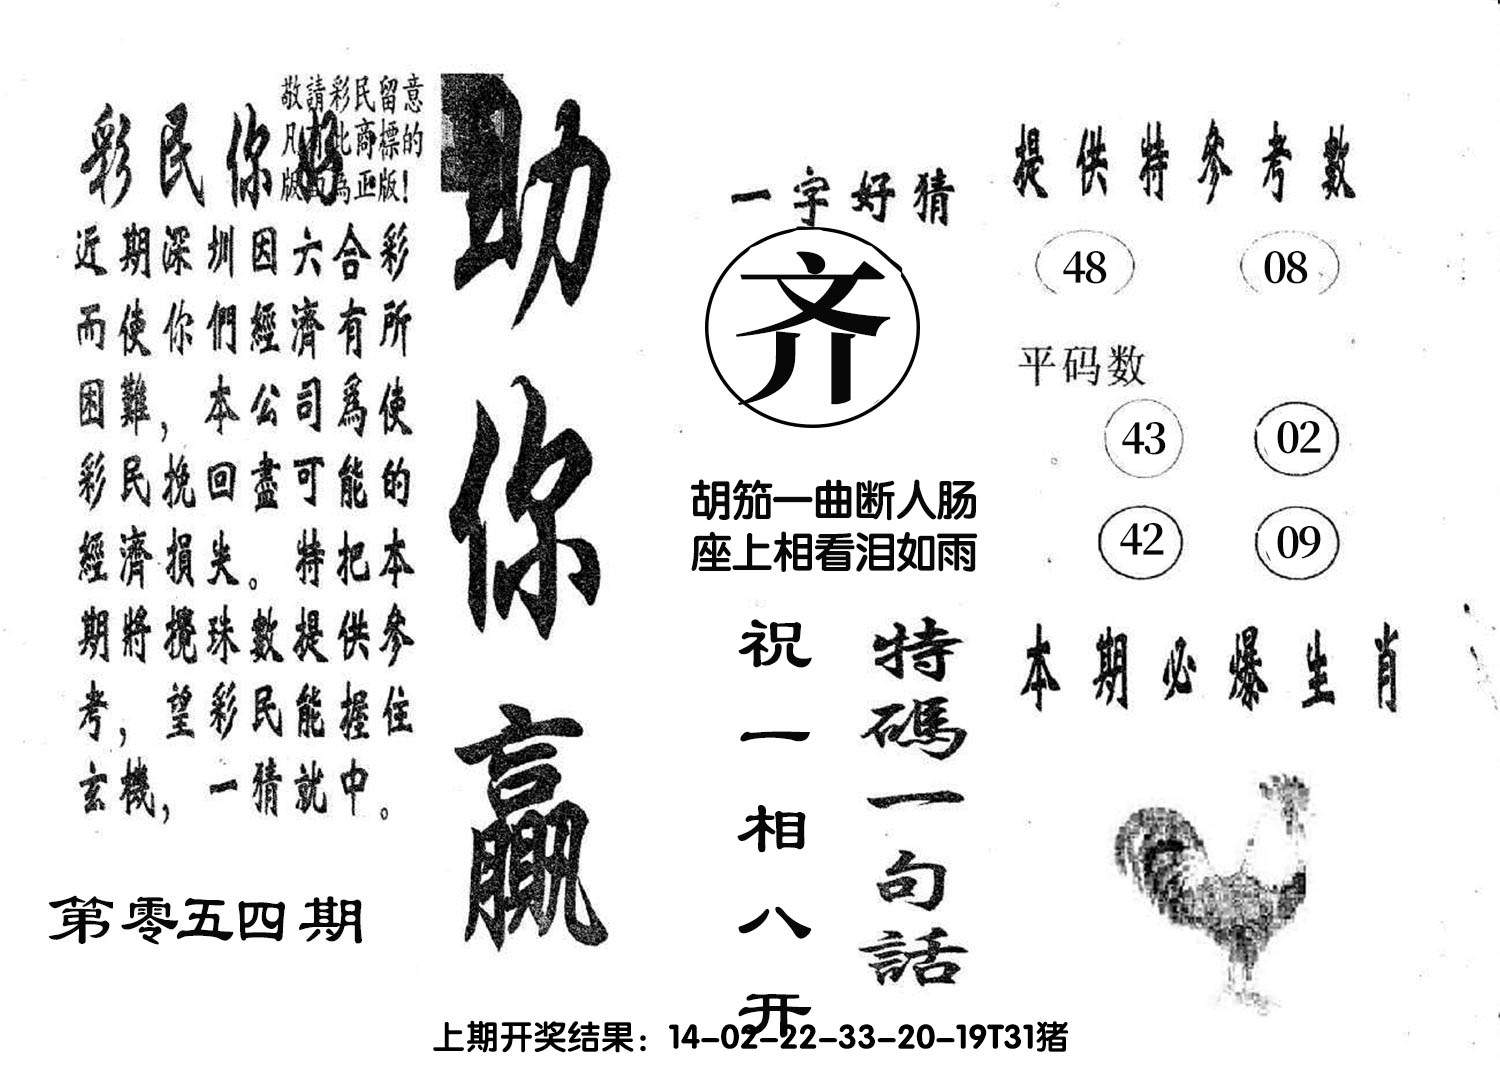 敬請彩民留意
凡有此商標的
版面為正版！
彩民你好
近期深圳因六合彩
而使你們經濟有所
困難，本公司爲使
彩民挽回盡可能的
經濟損失。特把本
期將攪珠數提供參
考，望彩民能握住
玄機，一猜就中。
第零五四期
助你贏
一字好猜
齐
胡笳一曲断人肠
座上相看泪如雨
特碼一句話
祝一相八开
提供特參考數
48 08
平码数
43 02
42 09
本期必爆生肖
上期开奖结果：14-02-22-33-20-19T31猪